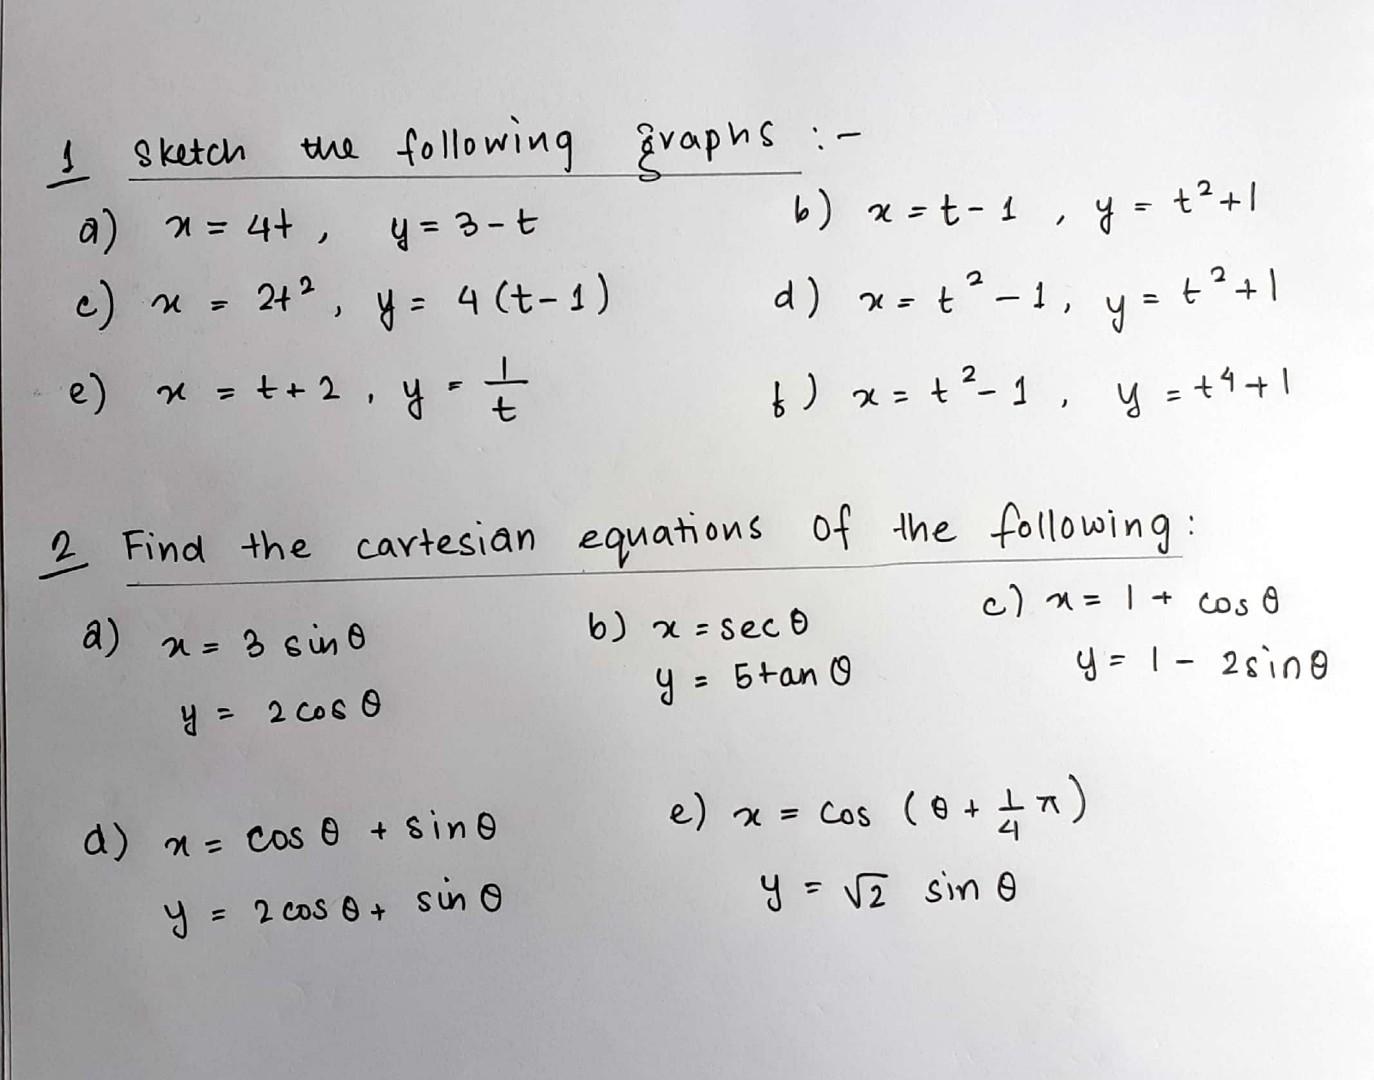 1 Sketch the following graphs :-
a) x = 4t , y = 3 - t b) x = t - 1 , y = t² + 1
c) x = 2t² , y = 4 (t - 1) d) x = t² - 1 , y = t² + 1
e) x = t + 2 , y = 1/t f) x = t² - 1 , y = t⁴ + 1
2 Find the cartesian equations of the following :
a) x = 3 sin θ b) x = sec θ c) x = 1 + cos θ
y = 2 cos θ y = 5 tan θ y = 1 - 2 sin θ
d) x = cos θ + sin θ e) x = cos (θ + 1/4 π)
y = 2 cos θ + sin θ y = √2 sin θ